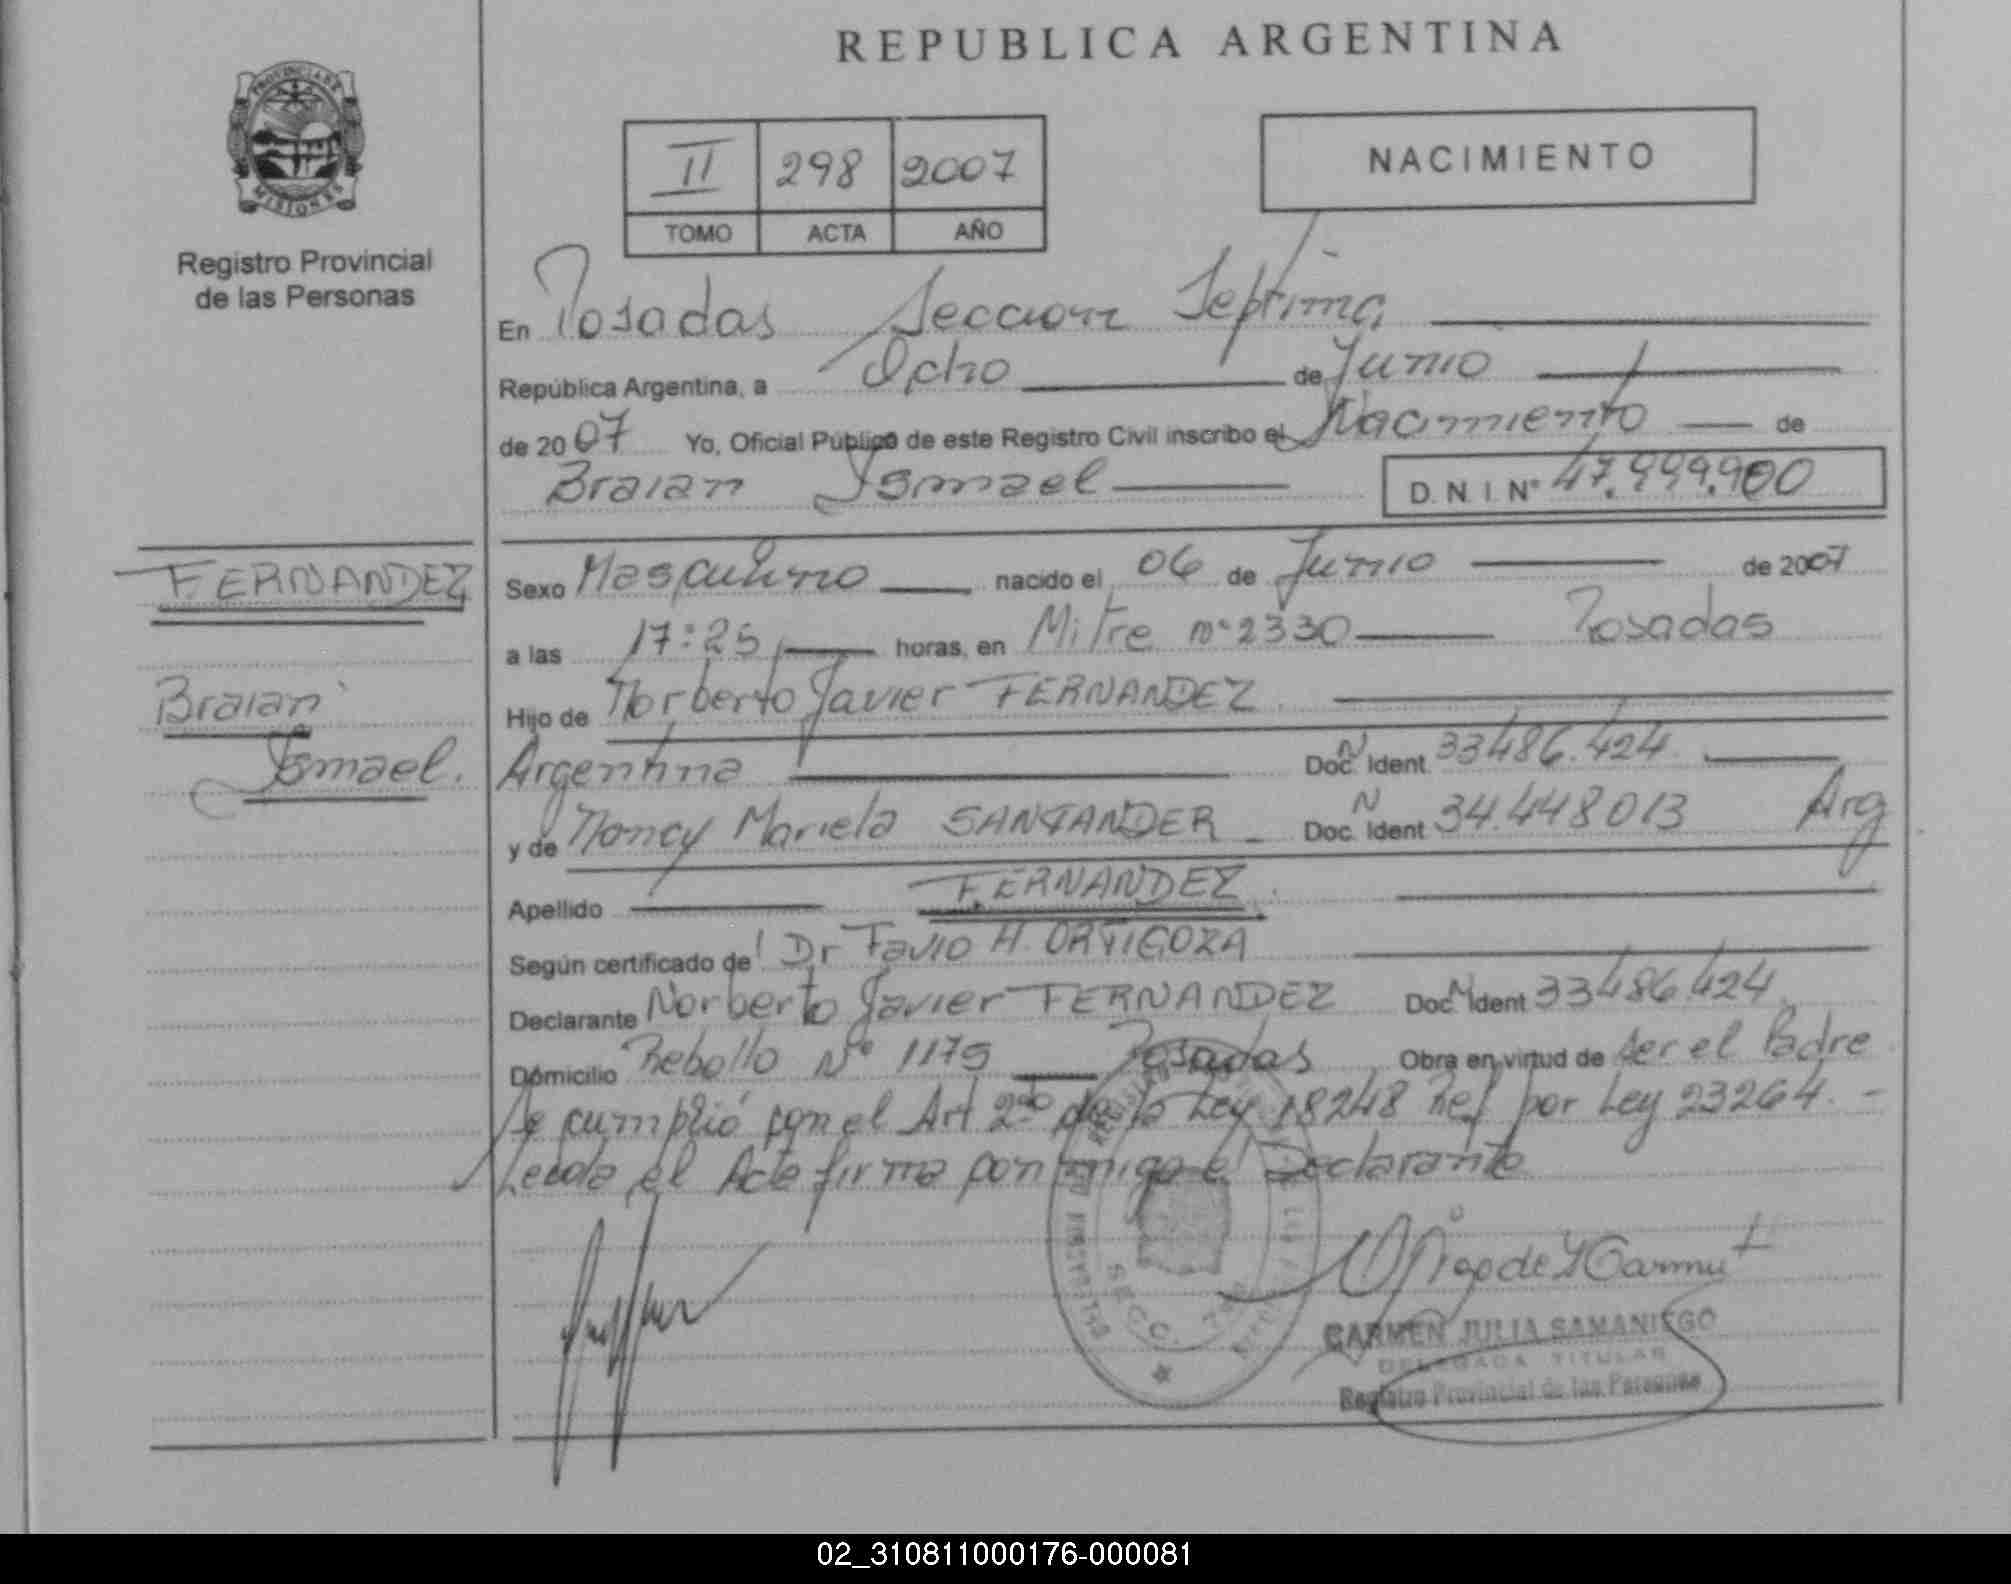 REPUBLICA ARGENTINA
PROVINCIA DE
MISIONES
Registro Provincial
de las Personas
II 298 2007
TOMO ACTA AÑO
NACIMIENTO
En Posadas Seccion Septima
República Argentina, a Ocho de Junio
de 2007 Yo, Oficial Público de este Registro Civil inscribo el Nacimiento de
Braian Ismael D.N.I. Nº 47.999.900
FERNANDEZ
Braian
Ismael.
Sexo Masculino nacido el 06 de Junio de 2007
a las 17:25 horas, en Mitre nº 2330 Posadas
Hijo de Norberto Javier FERNANDEZ
Argentina Doc. N Ident. 33486.424
y de Nancy Mariela SANTANDER Doc. N Ident 34.448013 Arg
Apellido FERNANDEZ
Según certificado de Dr Favio H. ORTIGOZA
Declarante Norberto Javier FERNANDEZ Doc. N Ident 33486.424
Domicilio Rebollo Nº 1175 Posadas Obra en virtud de ser el Padre
Se cumplió con el Art 2do de la Ley 18248 Ref por Ley 23264. -
Leida el Acta firma conmigo el Declarante
SECC.
CARMEN JULIA SAMANIEGO
DELEGADA TITULAR
Registro Provincial de las Personas
02_310811000176-000081